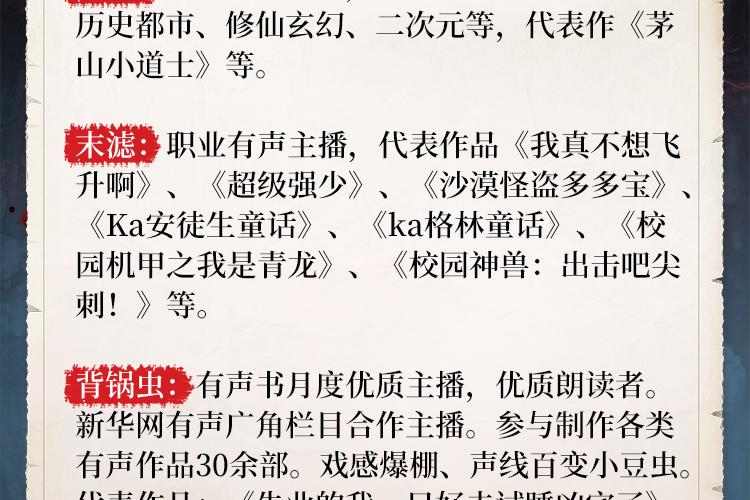 历史都市、修仙玄幻、二次元等，代表作《茅
山小道士》等。
末滤：职业有声主播，代表作品《我真不想飞
升啊》、《超级强少》、《沙漠怪盗多多宝》、
《Ka安徒生童话》、《ka格林童话》、《校
园机甲之我是青龙》、《校园神兽：出击吧尖
刺！》等。
背锅虫：有声书月度优质主播，优质朗读者。
新华网有声广角栏目合作主播。参与制作各类
有声作品30余部。戏感爆棚、声线百变小豆虫。
代表作品：《失业的我，只好去试睡凶宅了》